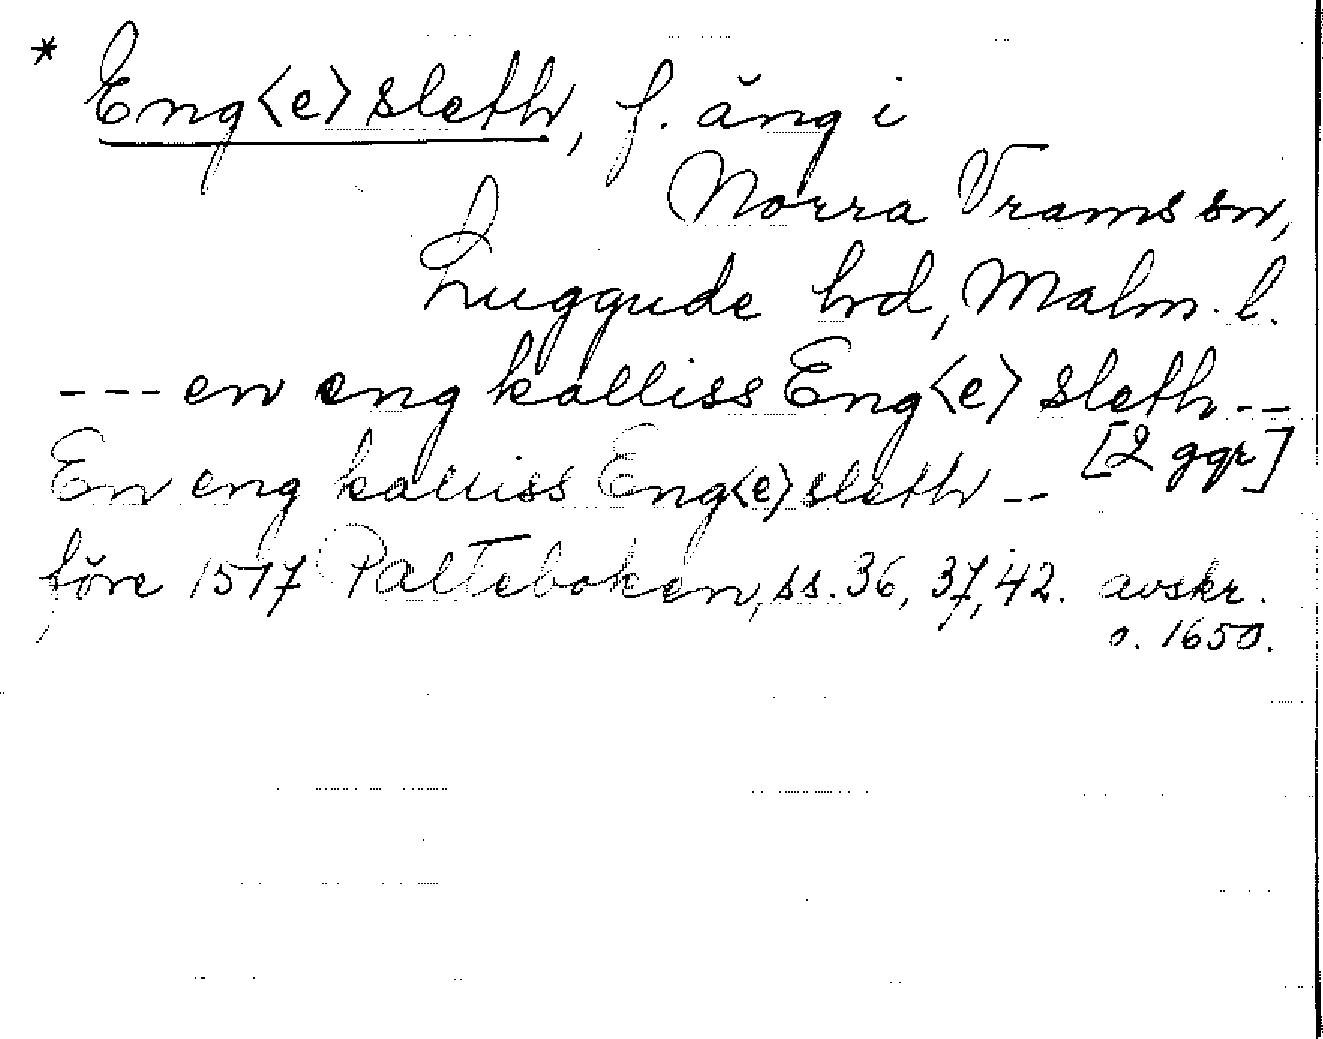 * Eng<e>sleth, f. äng i
Norra Vrams sn,
Luggude hd, Malm. l.
--- en eng kalliss Eng<e>sleth --
[2 ggr]
En eng kalliss Eng<e>sleth --
före 1517 Palteboken, ss. 36, 37, 42. avskr.
o. 1650.